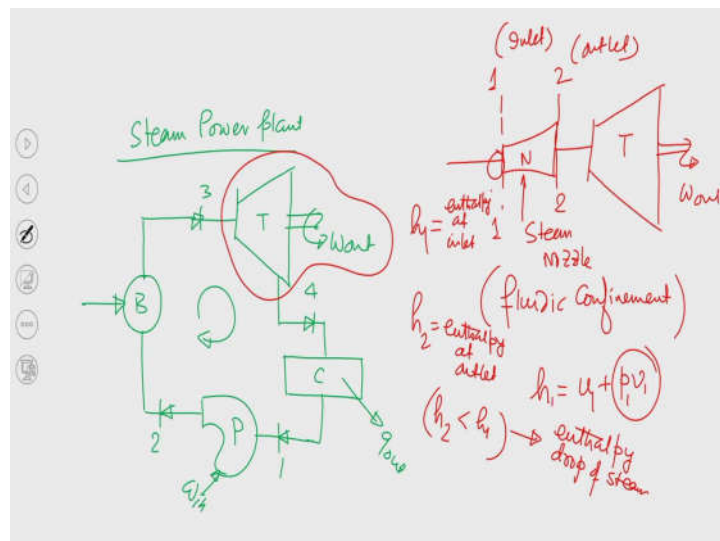 Steam Power plant
3
T
Wout
B
4
C
qout
P
2
1
(Inlet) (outlet)
1 2
N
T
Wout
1 2
h₁ = enthalpy at inlet
Steam
nozzle
(fluidic Confinement)
h₂ = enthalpy at outlet
h₁ = u₁ + p₁v₁
(h₂ < h₁) → enthalpy
drop of steam